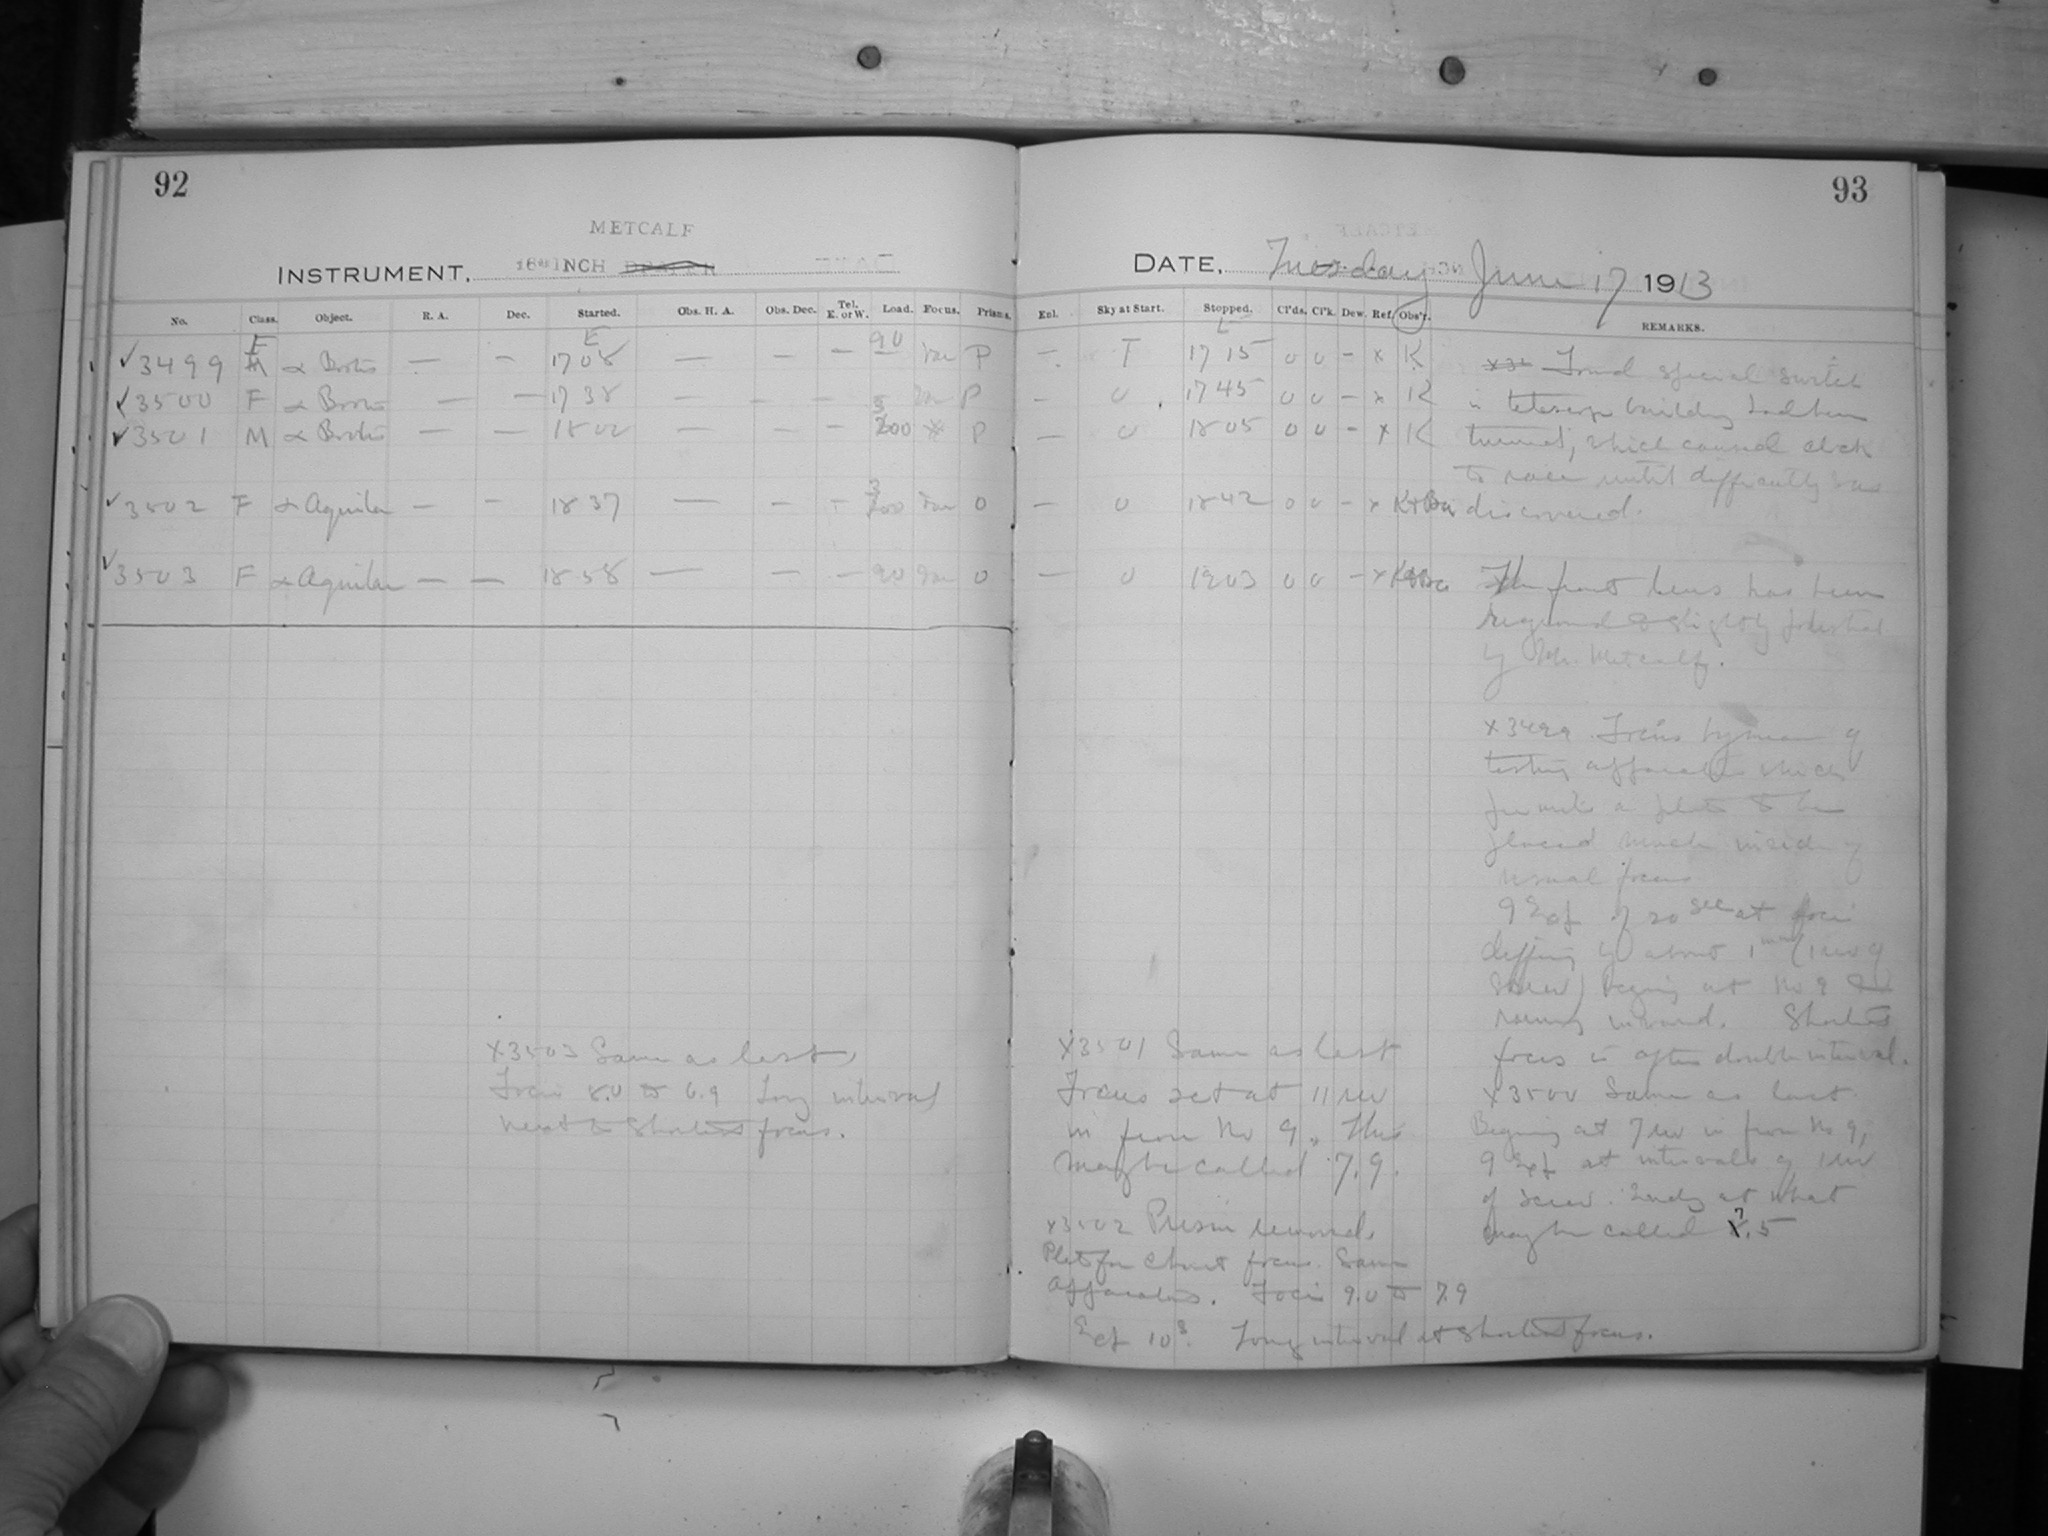 92
METCALF
INSTRUMENT. 16 INCH DRAPER
No. Class. Object. R. A. Dec. Started. Obs. H. A. Obs. Dec. Tel. E. or W. Load. Focus. Prisms.
✓3499 F α Bootis — — E 1708 — — — 90 Var P
✓3500 F α Bootis — — 1738 — — — Var P
✓3501 M α Bootis — — 1800 — — — 300 * P
✓3502 F α Aquilae — — 1837 — — — 300 Var 0
✓3503 F α Aquilae — — 1858 — — — 90 Var 0
X3503 Same as last,
Foci 8.0 to 6.9 Long interval
next to shortest focus.
93
DATE, Tuesday June 17 1913
Enl. Sky at Start. Stopped. Cl'ds. Cl'k. Dew. Ref. Obs'r. REMARKS.
— T 1715 0 0 — x K
— 0 1745 0 0 — x K
— 0 1805 0 0 — x K
— 0 1842 0 0 — x K+Ba
— 0 1903 0 0 — x
Found special switch
in telescope building had been
turned, which caused clock
to race until difficulty was
discovered.
The front lens has been
reground & slightly polished
by Mr. Metcalf.
X3499 Focus by means of
testing apparatus which
permits a plate to be
placed much inside of
usual focus
9 Exp of 20 sec at foci
differing by about 1 mm (1 rev of
screw) begins at No 9
running inward. Shortest
focus is after double interval.
X3500 Same as last
Begins at 7 rev in from No 9,
9 Exp at intervals of 1 rev
of screw. Ends at what
may be called 7.5
X3501 Same as last
Focus set at 11 rev
in from No 9. This
may be called 7.9.
X3502 Prism removed.
Plate for Chart focus. Same
apparatus. Foci 9.0 to 7.9
Exp 10s. Long interval at shortest focus.